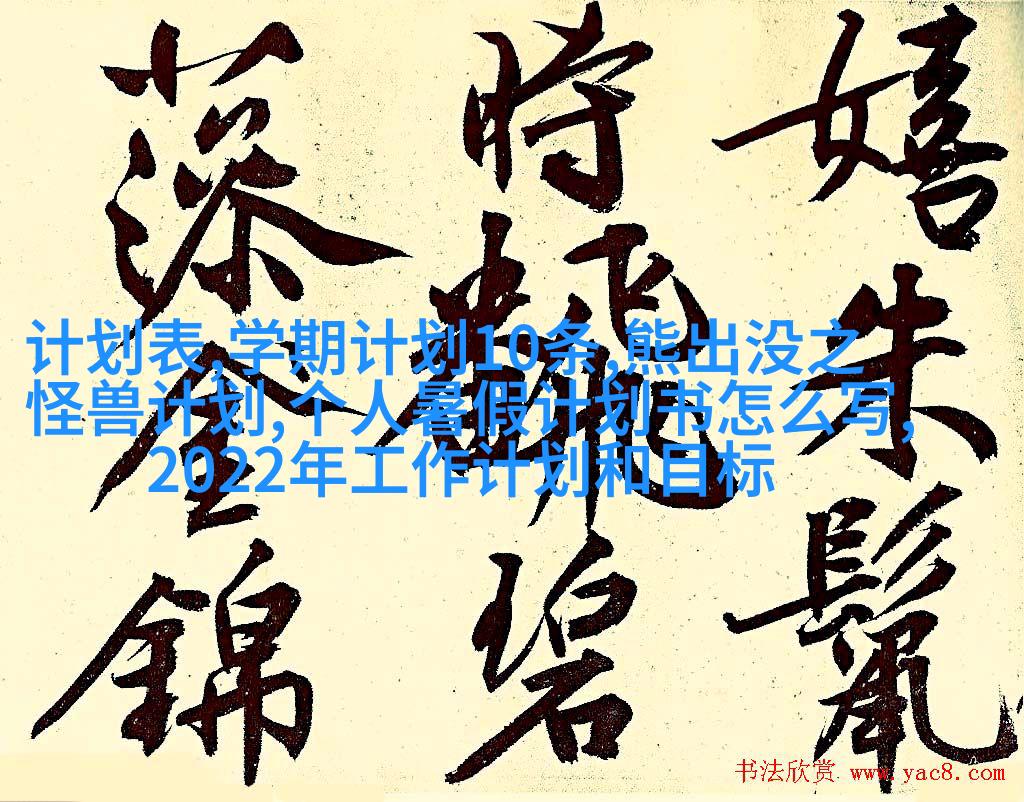 嬉朱鬣
時翻碧
藻金錦
计划表,学期计划10条,熊出没之
怪兽计划,个人暑假计划书怎么写,
2022年工作计划和目标
书法欣赏 www.yac8.com